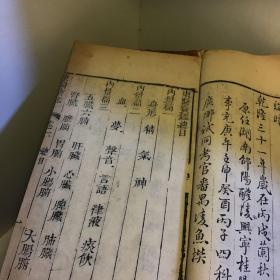 乾隆三十一年歲在丙戌蘭
原任湖南邵陽醴陵興寧桂
李元庚午壬申癸酉丙子四科
廣鄉試同考官番禺凌魚撰
東醫寶鑑總目
內景篇一
身形 精 氣 神
內景篇二
血 夢 聲音 言語 津液 痰飲
內景篇三
五臟六腑 肝臟 心臟 脾臟 肺臟
腎臟 膽腑 胃腑 小腸腑 大腸腑